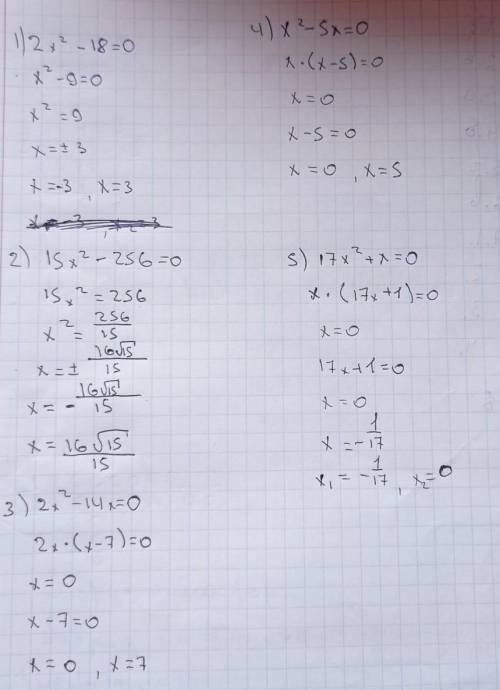 1) 2x² - 18 = 0
x² - 9 = 0
x² = 9
x = ± 3
x = -3 , x = 3
2) 15x² - 256 = 0
15x² = 256
x² = 256/15
x = ± 16√15/15
x = - 16√15/15
x = 16√15/15
3) 2x² - 14x = 0
2x · (x - 7) = 0
x = 0
x - 7 = 0
x = 0 , x = 7
4) x² - 5x = 0
x · (x - 5) = 0
x = 0
x - 5 = 0
x = 0 , x = 5
5) 17x² + x = 0
x · (17x + 1) = 0
x = 0
17x + 1 = 0
x = 0
x = - 1/17
x₁ = - 1/17 , x₂ = 0